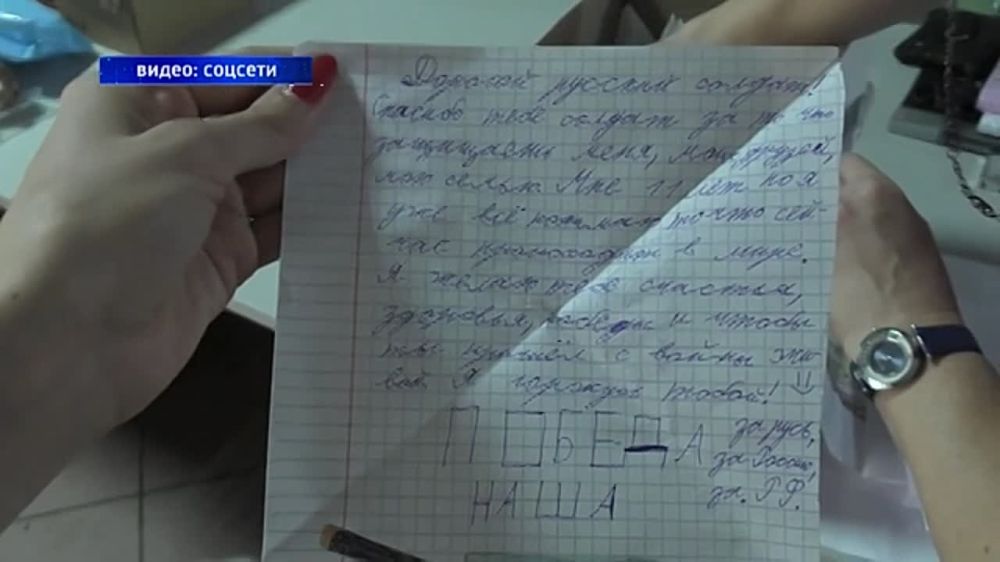 видео: соцсети
Дорогой русский солдат!
Спасибо тебе солдат за то что
защищаешь меня, моих друзей,
мою семью. Мне 11 лет но я
уже всё понимаю то что сей-
час происходит в мире.
Я желаю тебе счастья,
здоровья, победы и чтобы
ты пришёл с войны жи-
вой. Я горжусь тобой!
ПОБЕДА
НАША
за русь,
за Россию,
за. РФ.